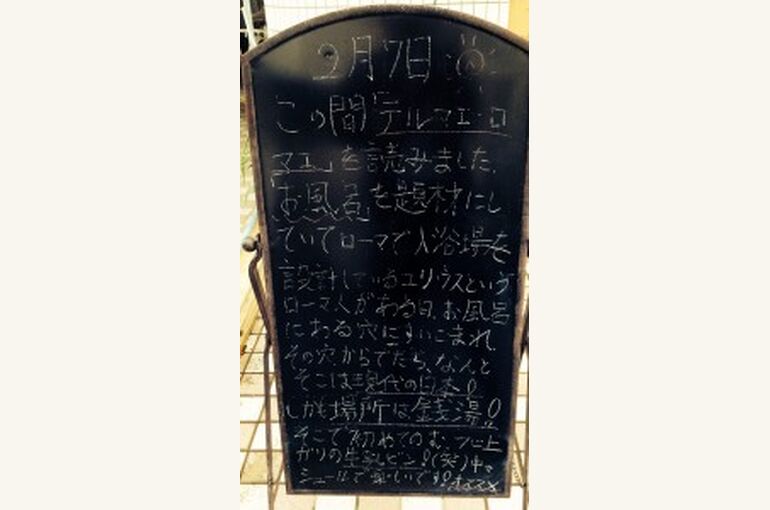 2月7日
この間「テルマエ・ロ
マエ」を読みました。
お風呂を題材にし
ていてローマで入浴場を
設計しているユリウスという
ローマ人がある日、お風呂
にある穴にすいこまれ、
その穴からでたら、なんと
そこは現代の日本!
しかも場所は銭湯!
そこで初めてのむ、フロ上
がりの生乳ビン!(笑)中々
シュールで楽しいです!オススメ